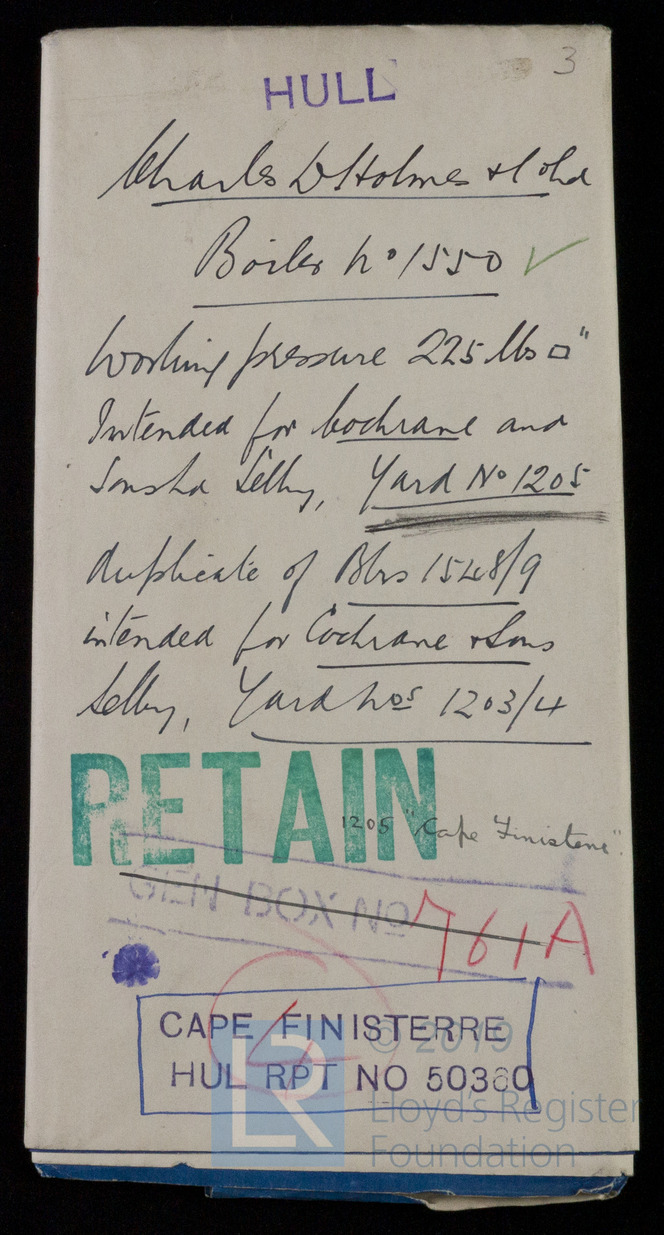 3
HULL
Charles D Holmes & Co Ltd
Boiler No 1550 ✓
Working pressure 225 lbs □"
Intended for Cochrane and
Sons Ltd Selby, Yard No 1205
duplicate of Blrs 1548/9
intended for Cochrane & Sons
Selby, Yard Nos 1203/4
RETAIN
1205 "Cape Finisterre".
GEN BOX NO 761A
CAPE FINISTERRE
HUL RPT NO 50360
© 2019
LR
Lloyd's Register
Foundation